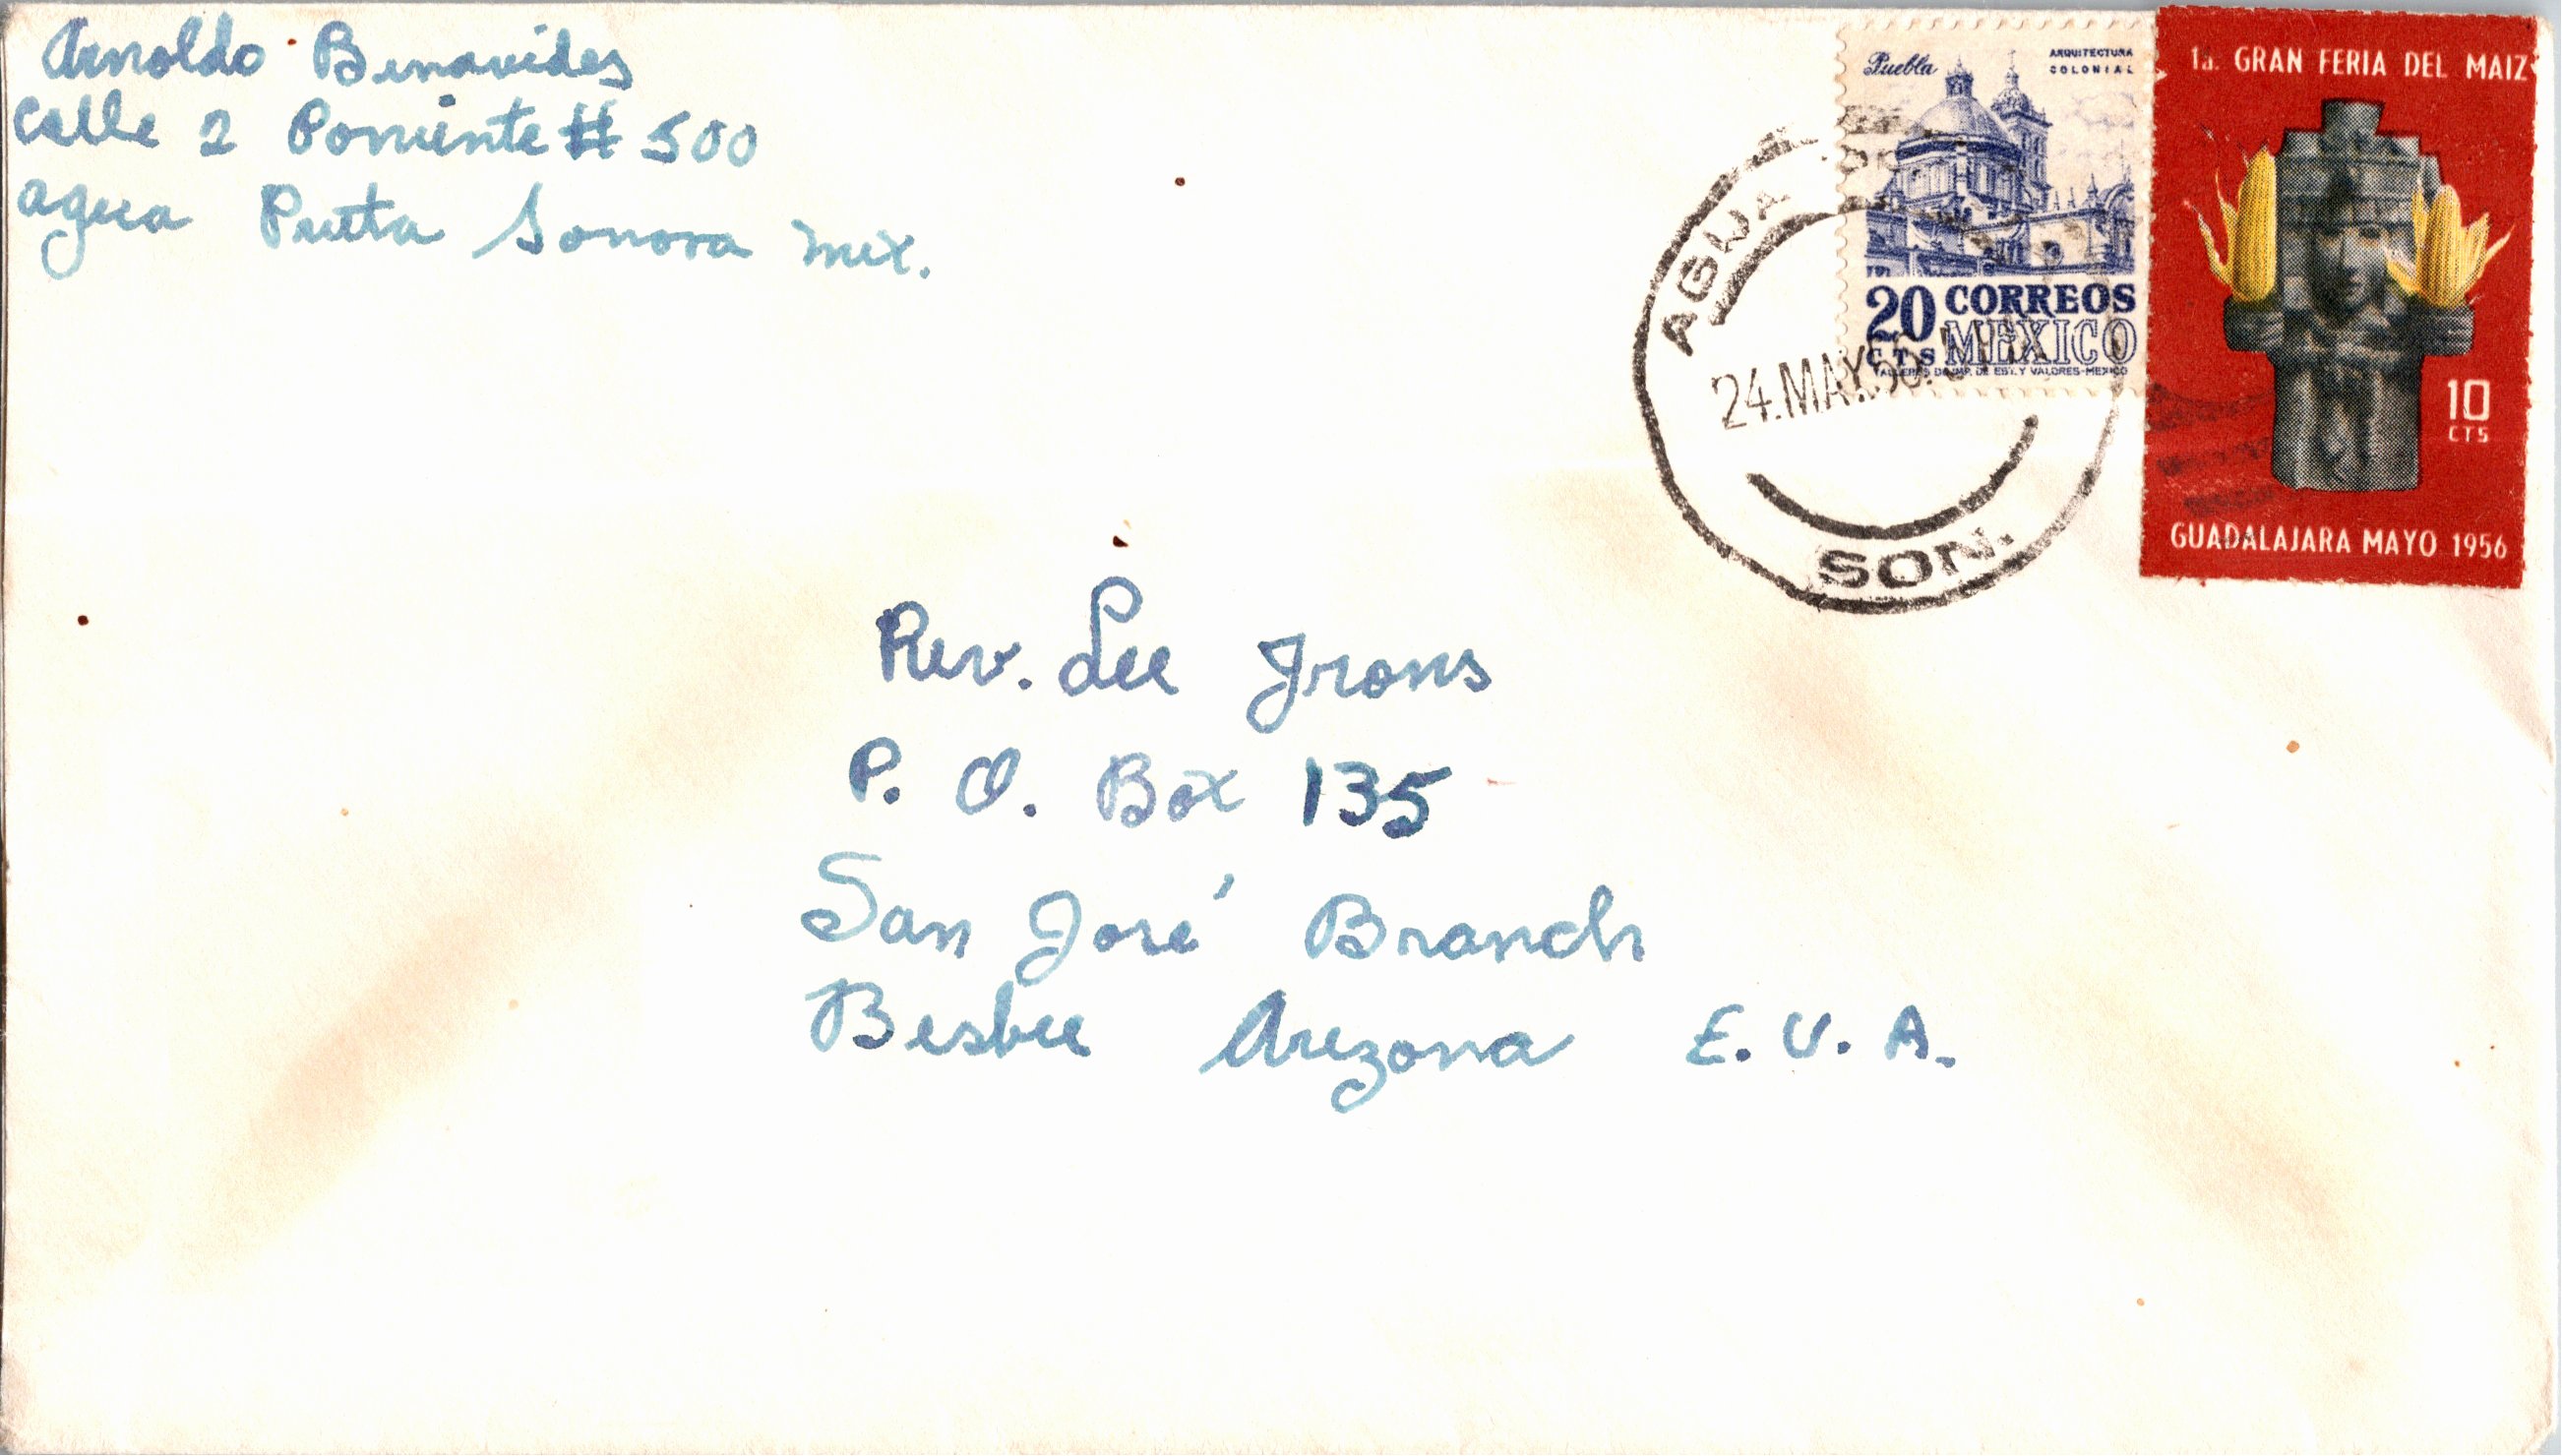 Arnoldo Benavides
Calle 2 Poniente # 500
Agua Prieta Sonora Mex.
Puebla
ARQUITECTURA
COLONIAL
20 CORREOS
CTS MEXICO
TALLERES DE IMP. DE EST. Y VALORES-MEXICO
1a. GRAN FERIA DEL MAIZ
10
CTS
GUADALAJARA MAYO 1956
AGUA
24.MAY.56
SON.
Rev. Lee Irons
P. O. Box 135
San José Branch
Bisbee Arizona E. U. A.